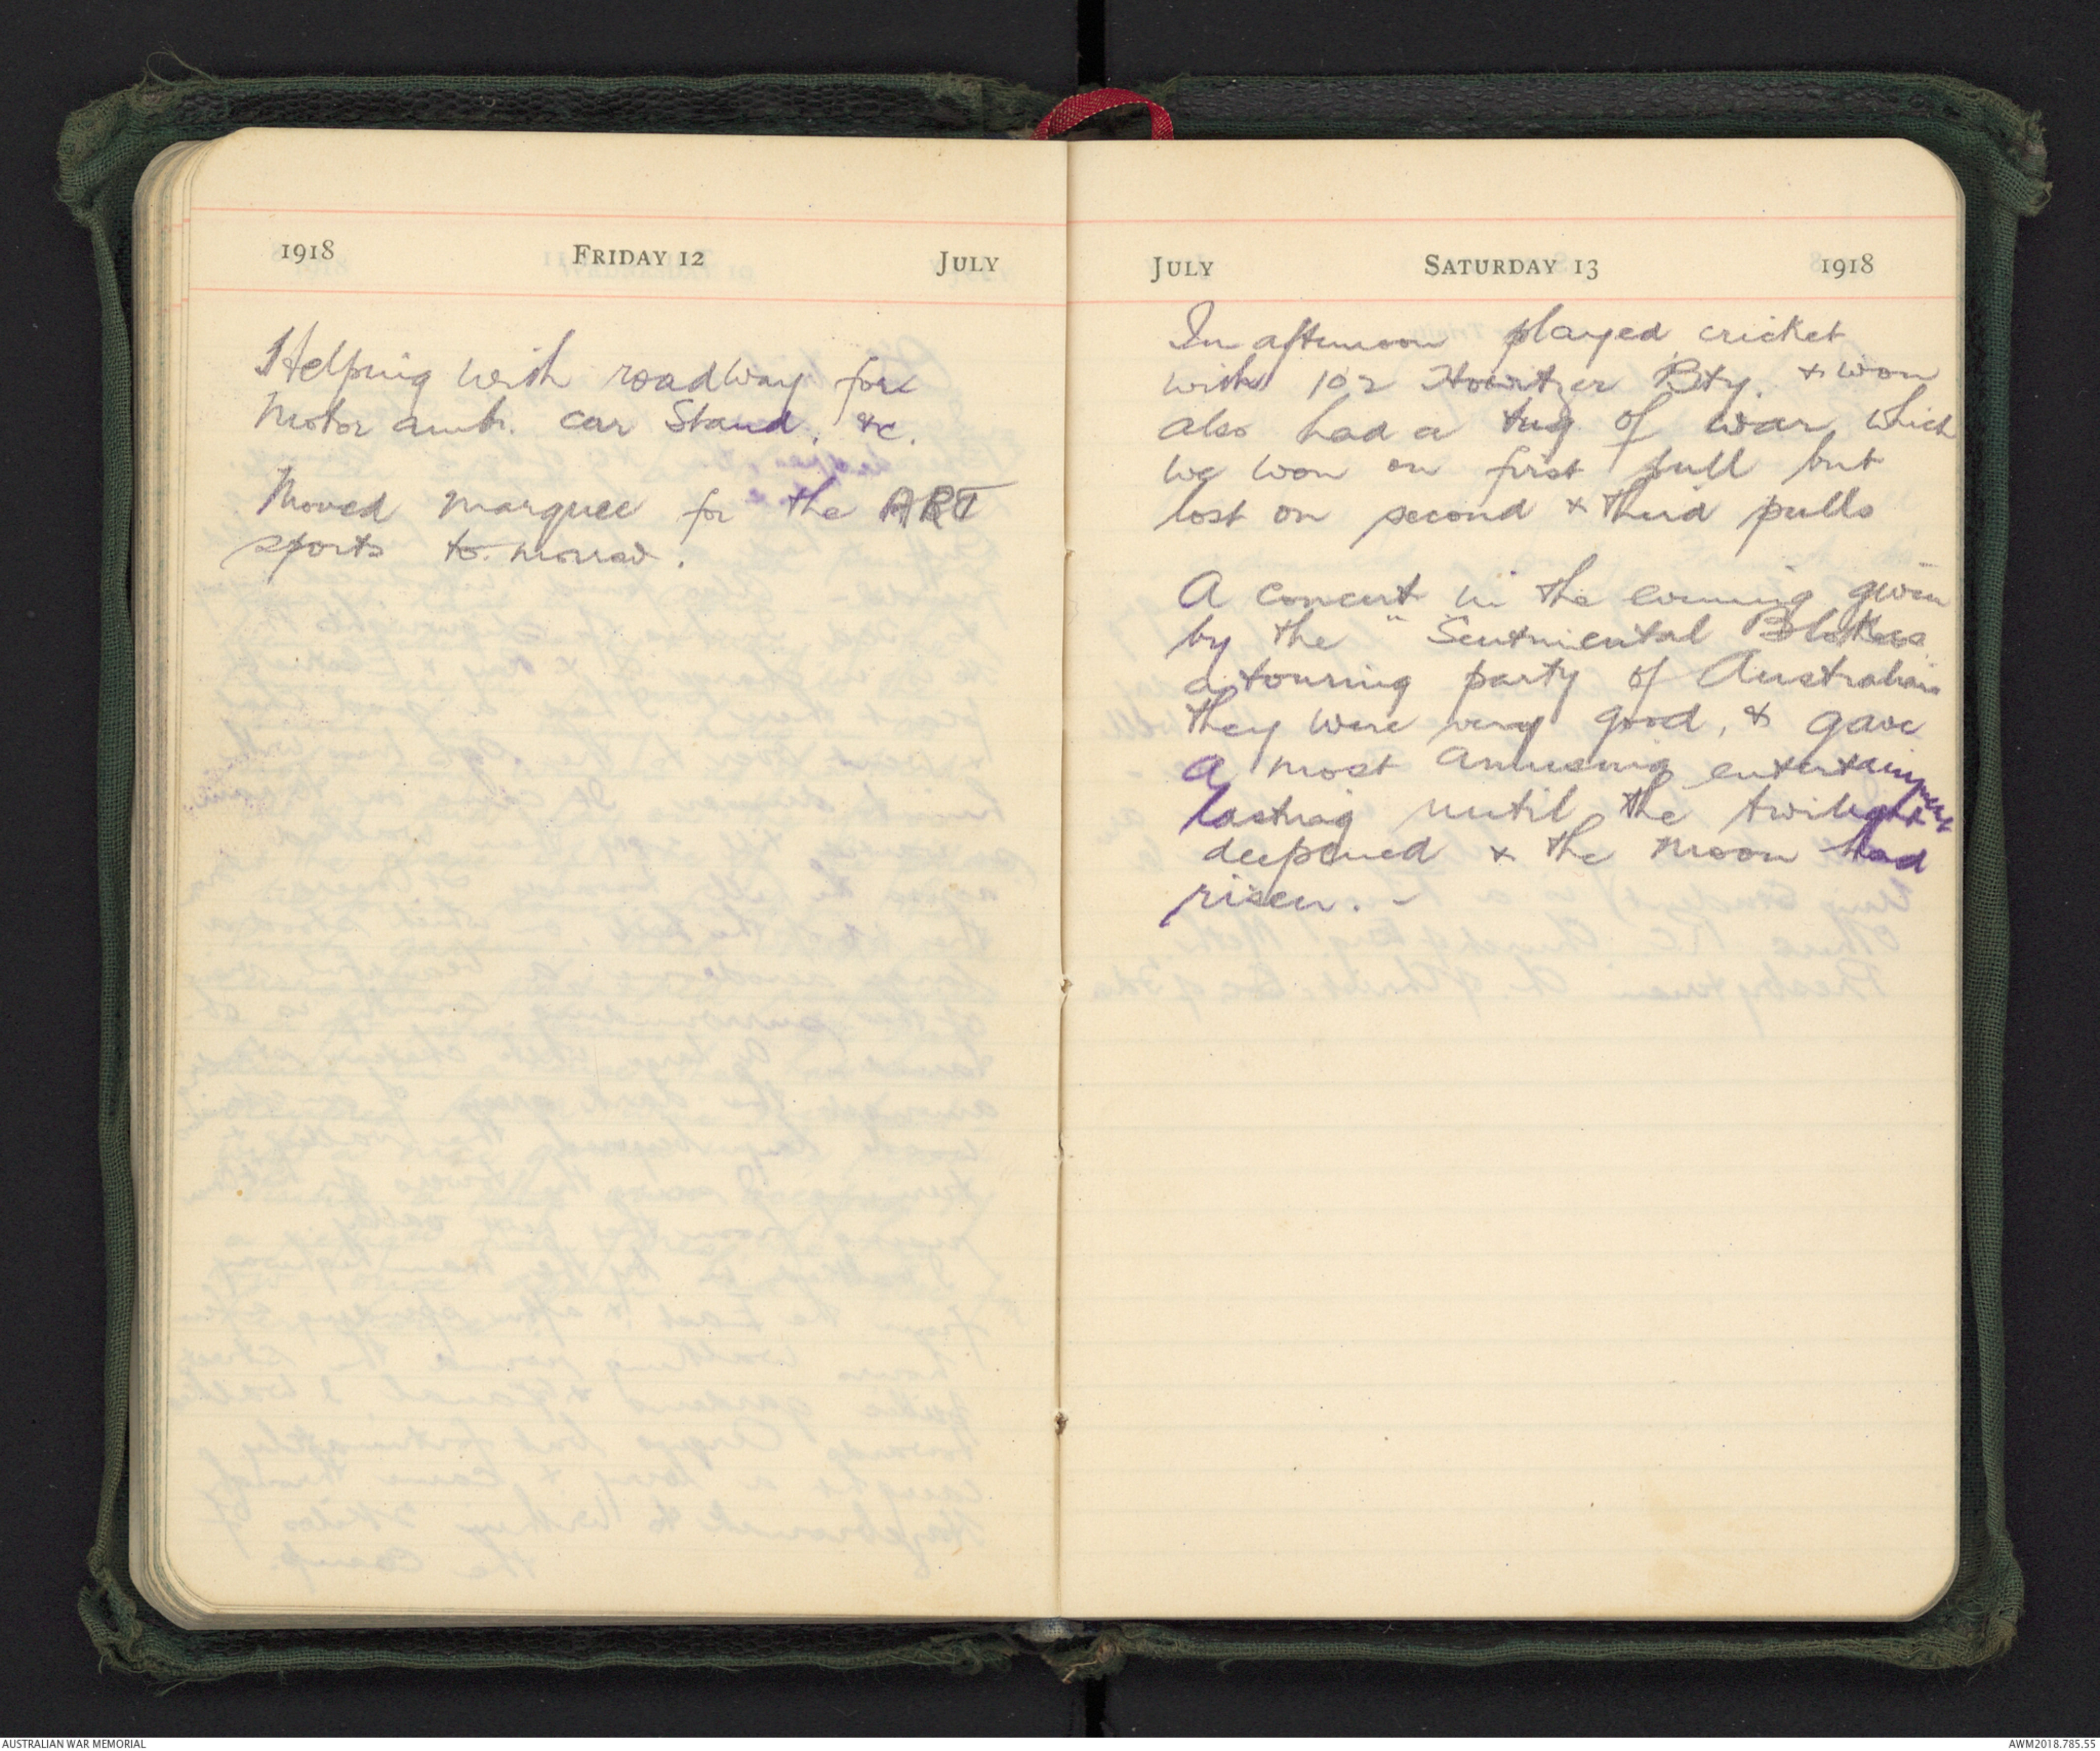 1918 FRIDAY 12 JULY
Helping with roadway for
Motor amb. car Stand. &c.
Moved marquee for the ART
sports to-morrow.
JULY SATURDAY 13 1918
In afternoon played cricket
with 102 Howitzer Bty. & won
also had a tug of war which
we won on first pull but
lost on second & third pulls
A concert in the evening given
by the "Sentimental Blokes
a touring party of Australians
they were very good, & gave
a most amusing entertainment
lasting until the twilight
deepened & the moon had
risen. -
AUSTRALIAN WAR MEMORIAL
AWM2018.785.55